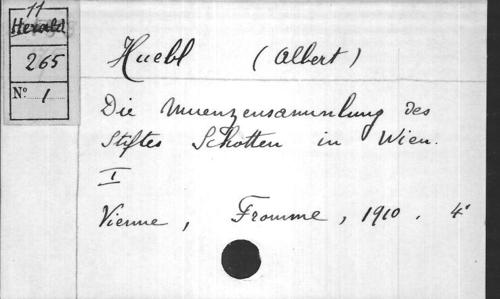 11
Herald
265
Nº 1
Huebl (Albert)
Die Muenzensammlung des
Stiftes Schotten in Wien.
I
Vienne, Fromme, 1910. 4°